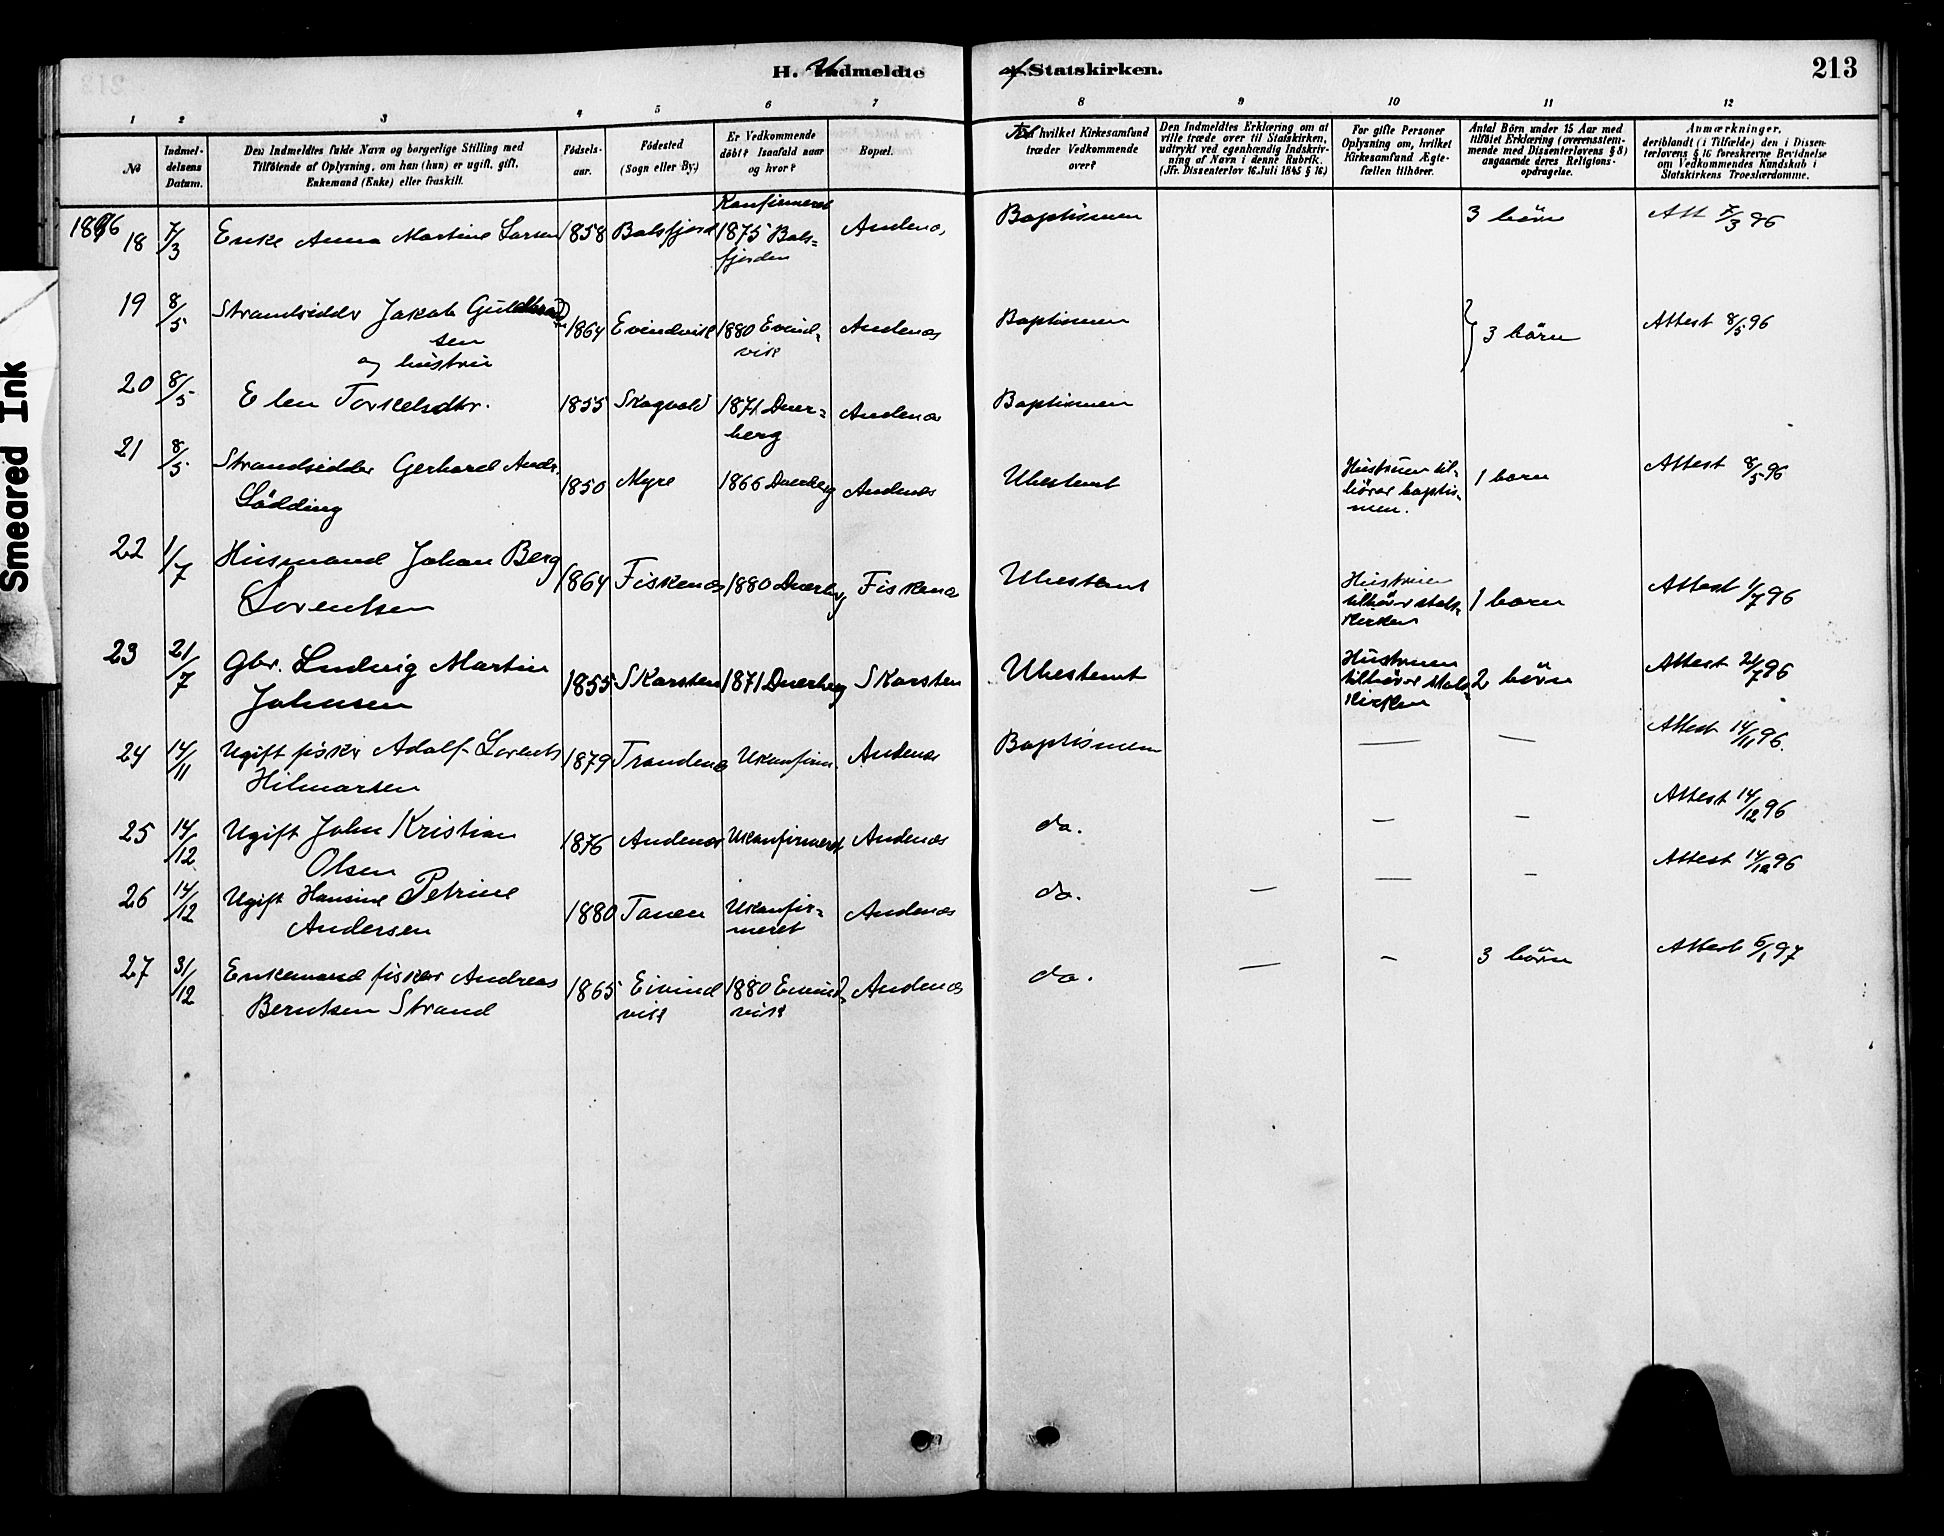 H. Udmeldte af Statskirken.
213
1 2 3 4 5 6 7 8 9 10 11 12
No
Indmel-
delsens
Datum.
Den Indmeldtes fulde Navn og borgerlige Stilling med
Tilföiende af Oplysning, om han (hun) er ugift, gift,
Enkemand (Enke) eller fraskilt.
Födsels-
aar.
Födested
(Sogn eller By.)
Er Vedkommende
döbt? Isaafald naar
og hvor?
Bopæl.
Til hvilket Kirkesamfund
træder Vedkommende
over?
Den Indmeldtes Erklæring om at
ville træde over til Statskirken,
udtrykt ved egenhændig Indskriv-
ning af Navn i denne Rubrik.
(Jfr. Dissenterlov 16. Juli 1845 § 16.)
For gifte Personer
Oplysning om, hvilket
Kirkesamfund Ægte-
fællen tilhörer.
Antal Börn under 15 Aar med
tilföiet Erklæring (overensstem-
mende med Dissenterlovens § 8)
angaaende deres Religions-
opdragelse.
Anmærkninger,
deriblandt (i Tilfælde) den i Dissen-
terlovens § 16 foreskrevne Bevidnelse
om Vedkommendes Kundskab i
Statskirkens Troeslærdomme.
1896
18 7/3 Enke Anna Martine Larsen 1858 Balsfjord Konfirmeret
1875 Bals-
fjorden
Andenæs Baptismen 3 börn Att 7/3 96
19 8/5 Strandsidder Jakob Guldbrand
sen
og hustru
1864 Evindvik 1880 Evind-
vik
Andenæs Baptismen } 3 börn Attest 8/5 96
20 8/5 Elen Torkelsdtr. 1855 Skogvold 1871 Dver-
berg
Andenæs Baptismen
21 8/5 Strandsidder Gerhard Andr.
Lödding
1850 Myre 1866 Dverberg Andenæs Ubestemt Hustruen til-
hörer baptis-
men.
1 barn Attest 8/5 96
22 1/7 Husmand Johan Berg
Lorentsen
1864 Fiskenæs 1880 Dverberg Fiskenæs Ubestemt Hustruen
tilhörer stats-
kirken
1 barn Attest 1/7 96
23 21/7 Gbr. Ludvig Martin
Johnsen
1855 Skarsten 1871 Dverberg Skarsten Ubestemt Hustruen
tilhörer stats-
kirken
2 börn Attest 21/7 96
24 14/11 Ugift fisker Adolf Lorents
Hilmarsen
1879 Trondenæs Ukonfirm. Andenæs Baptismen — — Attest 14/11 96.
25 14/12 Ugift John Kristian
Olsen
1876 Andenæs Ukonfirmeret Andenæs do. — — Attest 14/12 96
26 14/12 Ugift Hansine Petrine
Andersen
1880 Tanen Ukonfir-
meret
Andenæs do. — — — Attest 14/12 96
27 31/12 Enkemand fisker Andreas
Berntsen Strand
1865 Eivind
vik
1880 Eivind
vik
Andenæs do. — — 3 börn Attest 6/1 97
Smeared Ink